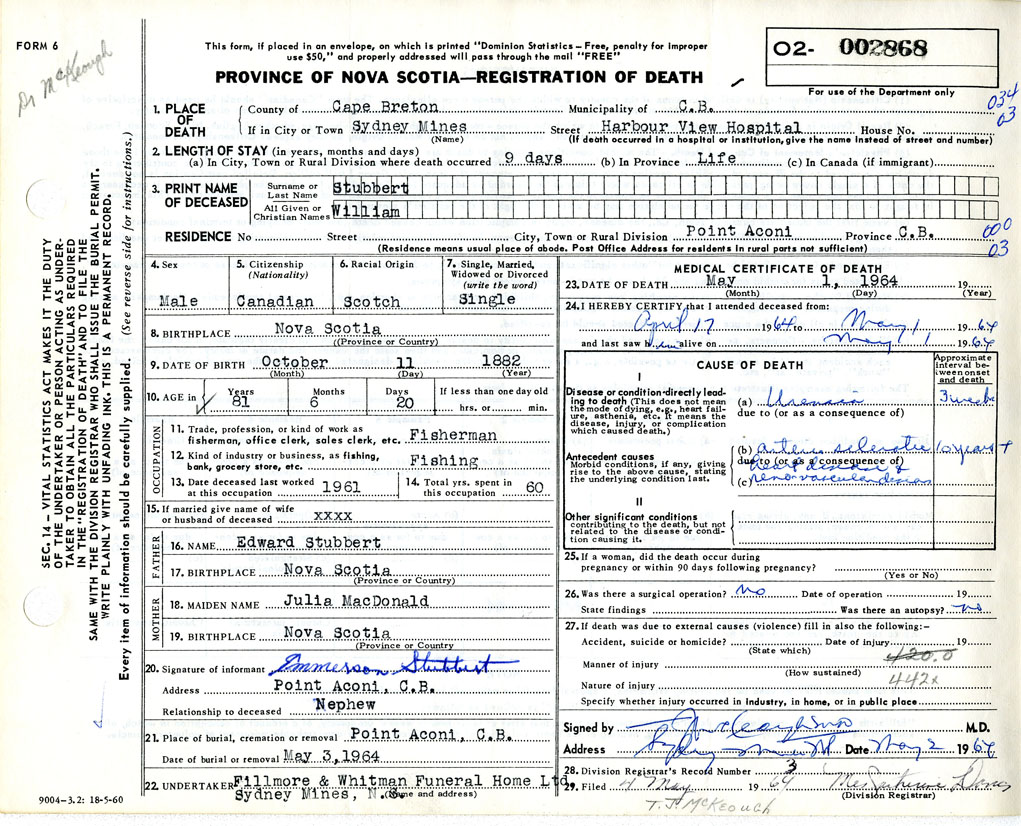 FORM 6
Dr McKeough
This form, if placed in an envelope, on which is printed "Dominion Statistics – Free, penalty for improper
use $50," and properly addressed will pass through the mail "FREE"
PROVINCE OF NOVA SCOTIA—REGISTRATION OF DEATH
02- 002868
For use of the Department only
034
03
SEC. 14 – VITAL STATISTICS ACT MAKES IT THE DUTY
OF THE UNDERTAKER OR PERSON ACTING AS UNDER-
TAKER TO OBTAIN ALL THE PARTICULARS REQUIRED
IN THE "REGISTRATION OF DEATH" AND TO FILE THE
SAME WITH THE DIVISION REGISTRAR WHO SHALL ISSUE THE BURIAL PERMIT.
WRITE PLAINLY WITH UNFADING INK. THIS IS A PERMANENT RECORD.
Every item of information should be carefully supplied. (See reverse side for instructions.)
1. PLACE OF DEATH
County of Cape Breton Municipality of C.B.
If in City or Town Sydney Mines Street Harbour View Hospital House No.
(Name) (If death occurred in a hospital or institution, give the name instead of street and number)
2. LENGTH OF STAY (in years, months and days)
(a) In City, Town or Rural Division where death occurred 9 days (b) In Province Life (c) In Canada (if immigrant)
3. PRINT NAME OF DECEASED
Surname or Last Name Stubbert
All Given or Christian Names William
RESIDENCE No Street City, Town or Rural Division Point Aconi Province C.B.
000
03
(Residence means usual place of abode. Post Office Address for residents in rural parts not sufficient)
4. Sex Male
5. Citizenship (Nationality) Canadian
6. Racial Origin Scotch
7. Single, Married, Widowed or Divorced (write the word) Single
8. BIRTHPLACE Nova Scotia
((Province or Country)
9. DATE OF BIRTH October 11 1882
(Month) (Day) (Year)
10. AGE in Years 81 Months 6 Days 20 If less than one day old hrs. or min.
OCCUPATION
11. Trade, profession, or kind of work as
fisherman, office clerk, sales clerk, etc. Fisherman
12. Kind of industry or business, as fishing,
bank, grocery store, etc. Fishing
13. Date deceased last worked at this occupation 1961
14. Total yrs. spent in this occupation 60
15. If married give name of wife
or husband of deceased xxxx
FATHER
16. NAME Edward Stubbert
17. BIRTHPLACE Nova Scotia
(Province or Country)
MOTHER
18. MAIDEN NAME Julia MacDonald
19. BIRTHPLACE Nova Scotia
(Province or Country)
20. Signature of informant Emmerson Stubbert
Address Point Aconi, C.B.
Relationship to deceased Nephew
21. Place of burial, cremation or removal Point Aconi, C.B.
Date of burial or removal May 3, 1964
22. UNDERTAKER Fillmore & Whitman Funeral Home Ltd
Sydney Mines, N.S. (Name and address)
9004–3.2: 18-5-60
MEDICAL CERTIFICATE OF DEATH
23. DATE OF DEATH May 1, 1964 19
(Month) (Day) (Year)
24. I HEREBY CERTIFY that I attended deceased from:
April 17 1964 to May 1 1964
and last saw him alive on May 1 1964
CAUSE OF DEATH
Approximate interval between onset and death
I
Disease or condition directly lead-
ing to death (This does not mean
the mode of dying, e.g., heart fail-
ure, asthenia, etc. It means the
disease, injury, or complication
which caused death.)
(a) Uremia 3 weeks
due to (or as a consequence of)
Antecedent causes
Morbid conditions, if any, giving
rise to the above cause, stating
the underlying condition last.
(b) arterio sclerotic 10 years +
due to (or as a consequence of)
heart disease &
(c) reno vascular disease
II
Other significant conditions
contributing to the death, but not
related to the disease or condi-
tion causing it.
25. If a woman, did the death occur during
pregnancy or within 90 days following pregnancy?
(Yes or No)
26. Was there a surgical operation? No Date of operation 19
State findings Was there an autopsy? No
27. If death was due to external causes (violence) fill in also the following:–
Accident, suicide or homicide? Date of injury 19
(State which)
420.0
Manner of injury
(How sustained)
442x
Nature of injury
Specify whether injury occurred in industry, in home, or in public place
Signed by T J McKeough M.D.
Address Sydney Mines Date May 2 1964
28. Division Registrar's Record Number 3
29. Filed 4 May 1964 Mrs
(Division Registrar)
T. J. McKEOUGH